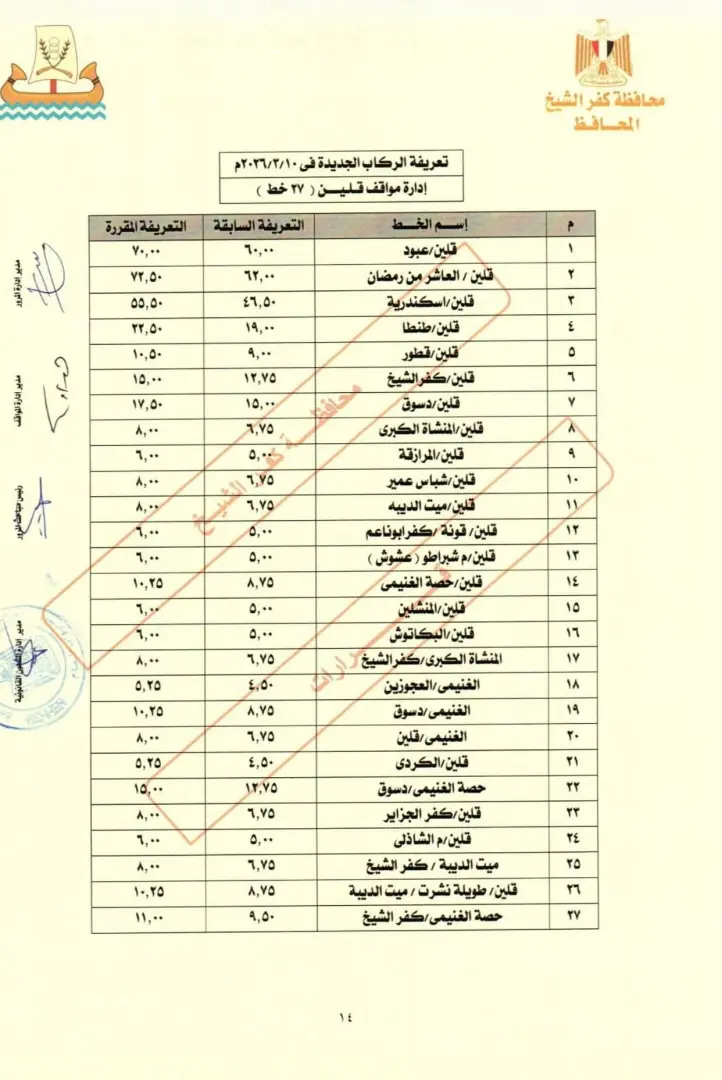 محافظة كفر الشيخ
المحافظ
تعريفة الركاب الجديدة فى ٢٠٢٦/٣/١٠م
إدارة مواقف قلين ( ٢٧ خط )
م إسم الخط التعريفة السابقة التعريفة المقررة
١ قلين/عبود ٦٠,٠٠ ٧٠,٠٠
٢ قلين / العاشر من رمضان ٦٢,٠٠ ٧٢,٥٠
٣ قلين/اسكندرية ٤٦,٥٠ ٥٥,٥٠
٤ قلين/طنطا ١٩,٠٠ ٢٢,٥٠
٥ قلين/قطور ٩,٠٠ ١٠,٥٠
٦ قلين/كفرالشيخ ١٢,٧٥ ١٥,٠٠
٧ قلين/دسوق ١٥,٠٠ ١٧,٥٠
٨ قلين/المنشاة الكبرى ٦,٧٥ ٨,٠٠
٩ قلين/المرازقة ٥,٠٠ ٦,٠٠
١٠ قلين/شباس عمير ٦,٧٥ ٨,٠٠
١١ قلين/ميت الديبه ٦,٧٥ ٨,٠٠
١٢ قلين/ قونة /كفرابوناعم ٥,٠٠ ٦,٠٠
١٣ قلين/م شبراطو ( عشوش ) ٥,٠٠ ٦,٠٠
١٤ قلين/حصة الغنيمى ٨,٧٥ ١٠,٢٥
١٥ قلين/المنشلين ٥,٠٠ ٦,٠٠
١٦ قلين/البكاتوش ٥,٠٠ ٦,٠٠
١٧ المنشاة الكبرى/كفر الشيخ ٦,٧٥ ٨,٠٠
١٨ الغنيمى/العجوزين ٤,٥٠ ٥,٢٥
١٩ الغنيمى/دسوق ٨,٧٥ ١٠,٢٥
٢٠ الغنيمى/قلين ٦,٧٥ ٨,٠٠
٢١ قلين/الكردى ٤,٥٠ ٥,٢٥
٢٢ حصة الغنيمى/دسوق ١٢,٧٥ ١٥,٠٠
٢٣ قلين/كفر الجزاير ٦,٧٥ ٨,٠٠
٢٤ قلين/م الشاذلى ٥,٠٠ ٦,٠٠
٢٥ ميت الديبة / كفر الشيخ ٦,٧٥ ٨,٠٠
٢٦ قلين/ طويلة نشرت / ميت الديبة ٨,٧٥ ١٠,٢٥
٢٧ حصة الغنيمى/كفر الشيخ ٩,٥٠ ١١,٠٠
محافظة كفر الشيخ
قرارات
مدير ادارة المرور
مدير ادارة المواقف
رئيس مباحث المرور
مدير ادارة الشئون القانونية
١٤